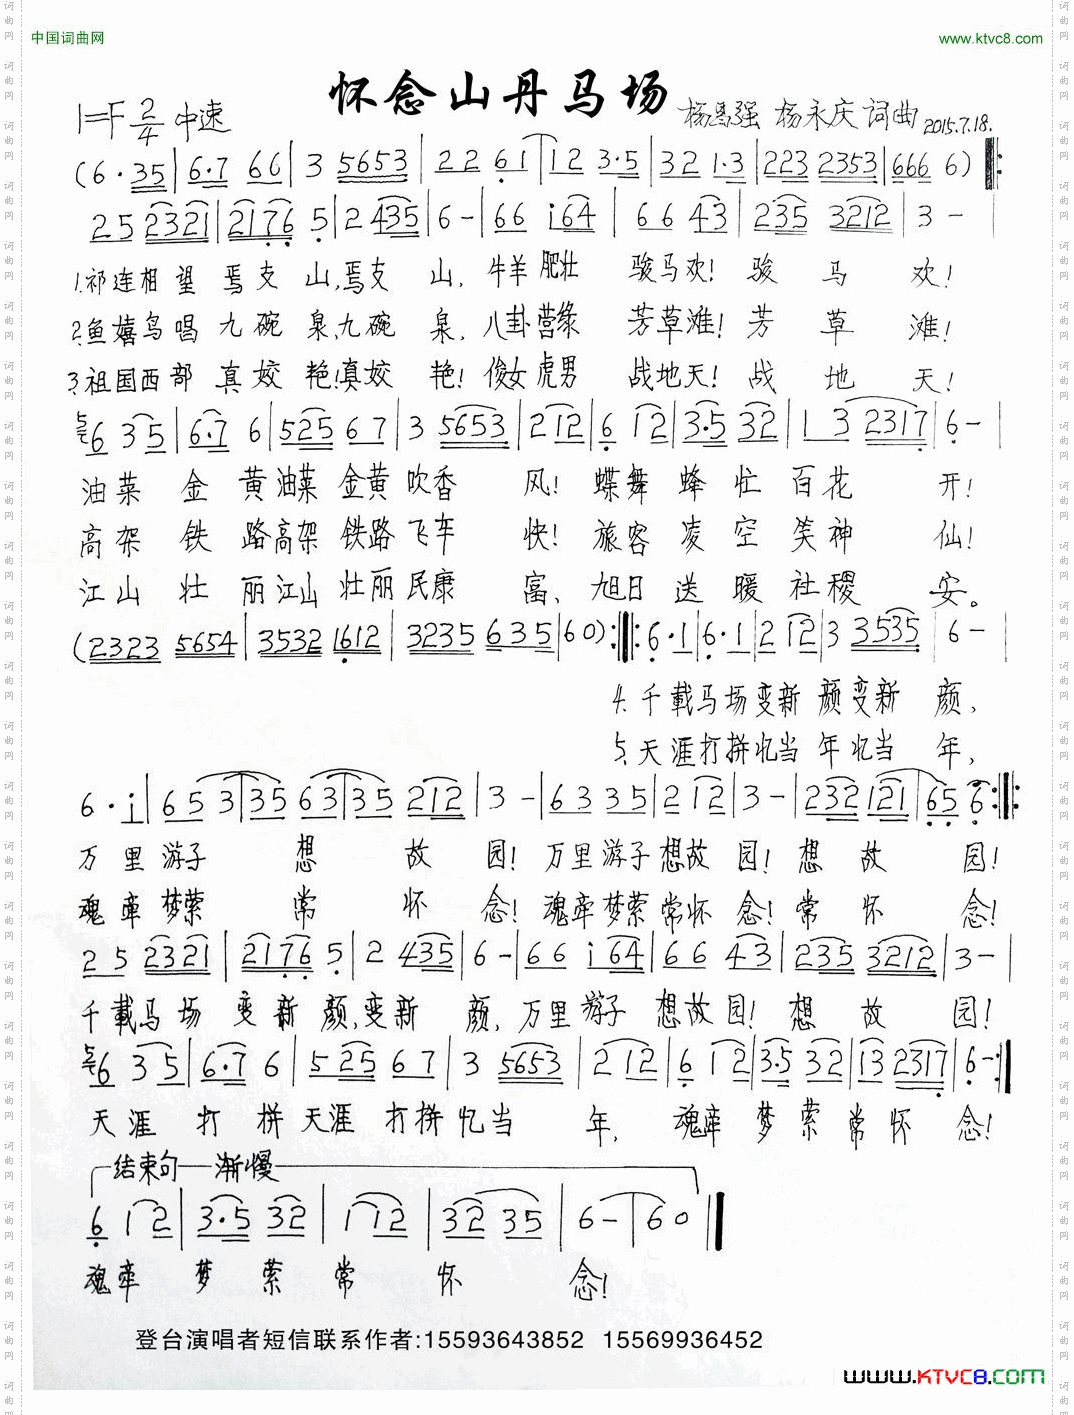 中国词曲网 www.ktvc8.com
怀念山丹马场
1=F 2/4 中速 杨恩强 杨永庆 词曲 2015.7.18.
(6·35|6·7 66|3 5653|22 61|12 3·5|32 1·3|223 2353|666 6):
25 2321|2176 5|2 435|6-|66 i64|66 43|235 3212|3-
1.祁连相望焉支山,焉支山,牛羊肥壮骏马欢!骏马欢!
2.鱼嬉鸟唱九碗泉,九碗泉,八卦营缘芳草滩!芳草滩!
3.祖国西部真姣艳!真姣艳!俊女虎男战地天!战地天!
6 35|6·7 6|525 67|3 5653|2 12|6 12|3·5 32|1 3 2317|6-|
油菜金黄油菜金黄吹香风!蝶舞蜂忙百花开!
高架铁路高架铁路飞车快!旅客凌空笑神仙!
江山壮丽江山壮丽民康富、旭日送暖社稷安。
(2323 5654|3532 1612|3235 635|60):‖:6·1|6·1|2 12|3 3535|6-|
4.千载马场变新颜变新颜,
5.天涯打拼忆当年忆当年,
6·i|65 3|35 63|35 212|3-|63 35|2 12|3-|232 121|65 6:‖:
万里游子想故园!万里游子想故园!想故园!
魂牵梦萦常怀念!魂牵梦萦常怀念!常怀念!
25 2321|2176 5|2 435|6-|66 i64|66 43|235 3212|3-|
千载马场变新颜,变新颜,万里游子想故园!想故园!
6 35|6·7 6|525 67|3 5653|2 12|6 12|3·5 32|13 2317|6-:‖
天涯打拼天涯打拼忆当年,魂牵梦萦常怀念!
结束句 渐慢
6 12|3·5 32|1 12|32 35|6-|60‖
魂牵梦萦常怀念!
登台演唱者短信联系作者:15593643852 15569936452
www.KTVC8.com